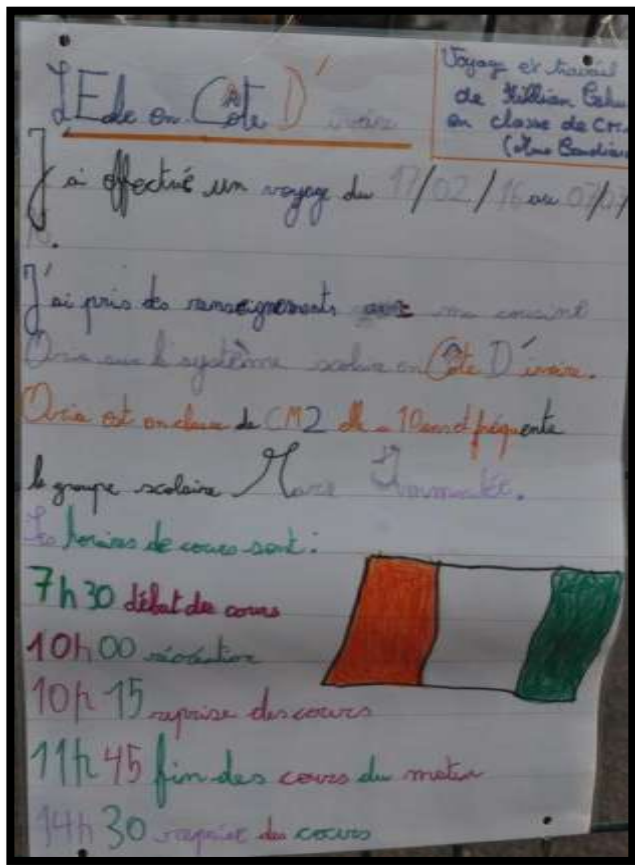 L'École en Côte D'ivoire
Voyage et travail
de Killian
en classe de CM
J'ai effectué un voyage du 17/02/16 au 07/03
J'ai pris des renseignements avec ma cousine
Oria sur le système scolaire en Côte D'ivoire.
Oria est en classe de CM2 elle a 10 ans et fréquente
le groupe scolaire Marie
Les horaires de cours sont :
7h30 début des cours
10h00 récréation
10h15 reprise des cours
11h45 fin des cours du matin
14h30 reprise des cours